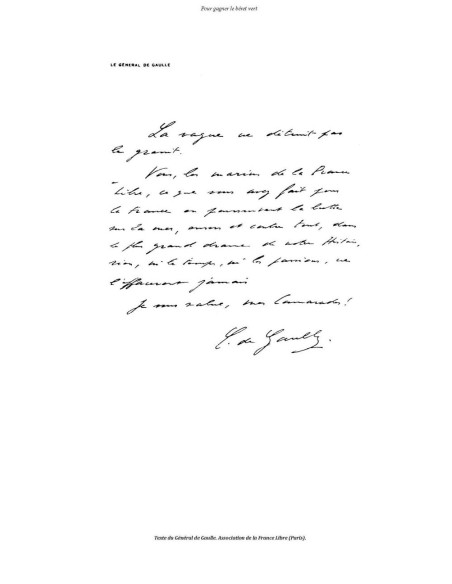 Pour gagner le béret vert
LE GÉNÉRAL DE GAULLE
La vague ne détruit pas
le granit.
Vous, les marins de la France
Libre, ce que vous avez fait pour
la France en poursuivant la lutte
sur la mer, envers et contre tout, dans
le plus grand drame de notre Histoire,
rien, ni le temps, ni les passions, ne
l'effaceront jamais
Je vous salue, mes Camarades!
C. de Gaulle.
Texte du Général de Gaulle. Association de la France Libre (Paris).